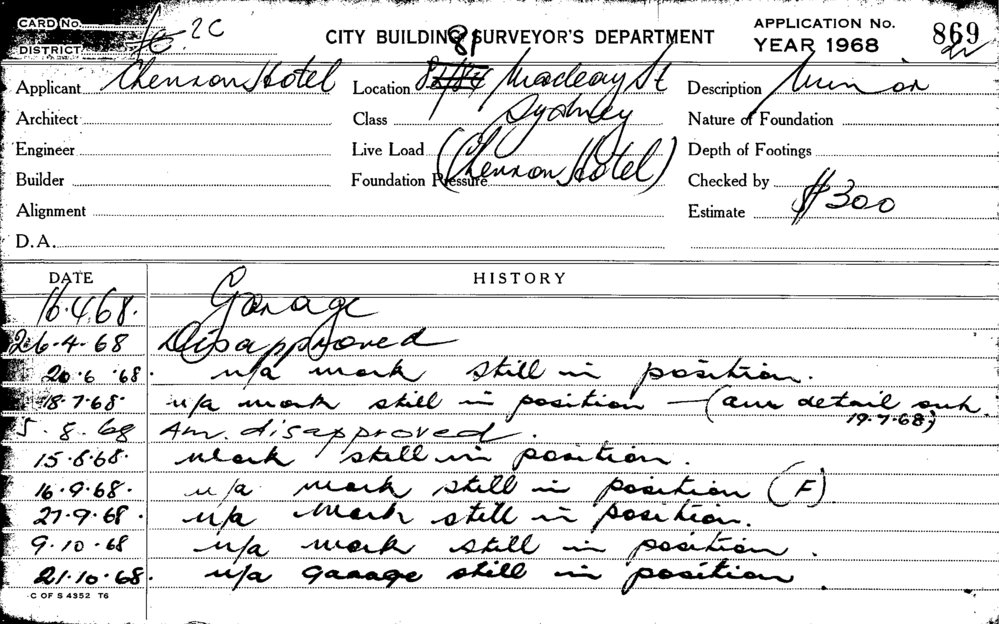 CARD No. 2C
DISTRICT
CITY BUILDING SURVEYOR'S DEPARTMENT
APPLICATION No. 869
YEAR 1968
Applicant Chenron Hotel
Location 81 Macleay St
Description Minor
Architect
Class Sydney
Nature of Foundation
Engineer
Live Load (Chenron Hotel)
Depth of Footings
Builder
Foundation Pressure
Checked by
Alignment
Estimate $300
D.A.
DATE HISTORY
16.4.68. Garage
26-4-68 Disapproved
20.6.68. u/a work still in position.
18.7.68. u/a work still in position - (am detail sub. 19.7.68)
5.8.68 Am. disapproved.
15.8.68. work still in position.
16.9.68. u/a work still in position (F)
27.9.68. u/a work still in position.
9.10.68 u/a work still in position.
21.10.68. u/a garage still in position
C OF S 4352 T6